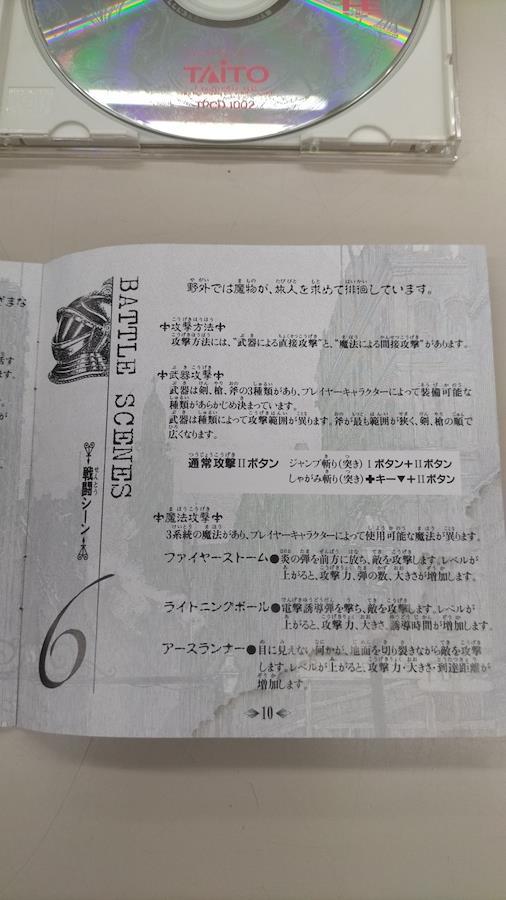 TAITO
TPCD 1002
BATTLE SCENES
戦闘シーン
せんとう
6
野外では魔物が、旅人を求めて徘徊しています。
✢攻撃方法✢
攻撃方法には、"武器による直接攻撃"と、"魔法による間接攻撃"があります。
✢武器攻撃✢
武器は剣、槍、斧の3種類があり、プレイヤーキャラクターによって装備可能な
種類があらかじめ決まっています。
武器は種類によって攻撃範囲が異ります。斧が最も範囲が狭く、剣、槍の順で
広くなります。
通常攻撃IIボタン ジャンプ斬り(突き)Iボタン+IIボタン
しゃがみ斬り(突き)✚キー▼+IIボタン
✢魔法攻撃✢
3系統の魔法があり、プレイヤーキャラクターによって使用可能な魔法が異ります。
ファイヤーストーム●炎の弾を前方に放ち、敵を攻撃します。レベルが
上がると、攻撃力、弾の数、大きさが増加します。
ライトニングボール●電撃誘導弾を撃ち、敵を攻撃します。レベルが
上がると、攻撃力、大きさ、誘導時間が増加します。
アースランナー●目に見えない何かが、地面を切り裂きながら敵を攻撃
します。レベルが上がると、攻撃力・大きさ・到達距離が
増加します。
10